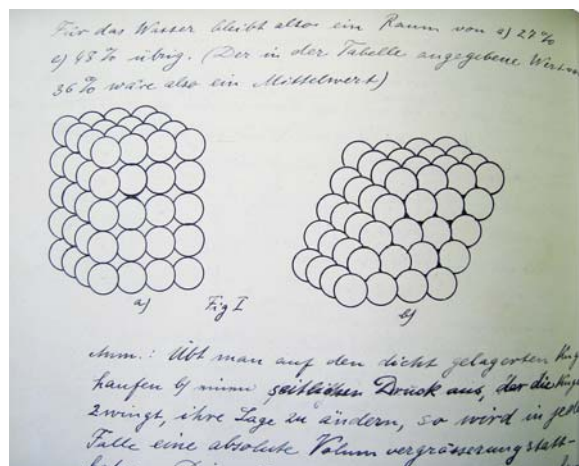 Für das Wasser bleibt also ein Raum von a) 27%
c) 48% übrig. (Der in der Tabelle angegebene Wert
36% wäre also ein Mittelwert)
a)
Fig I
b)
Anm.: Übt man auf den dicht gelagerten
haufen b) einen seitlichen Druck aus, der die
zwingt, ihre Lage zu ändern, so wird in
Falle eine absolute Volumvergrösserung statt-